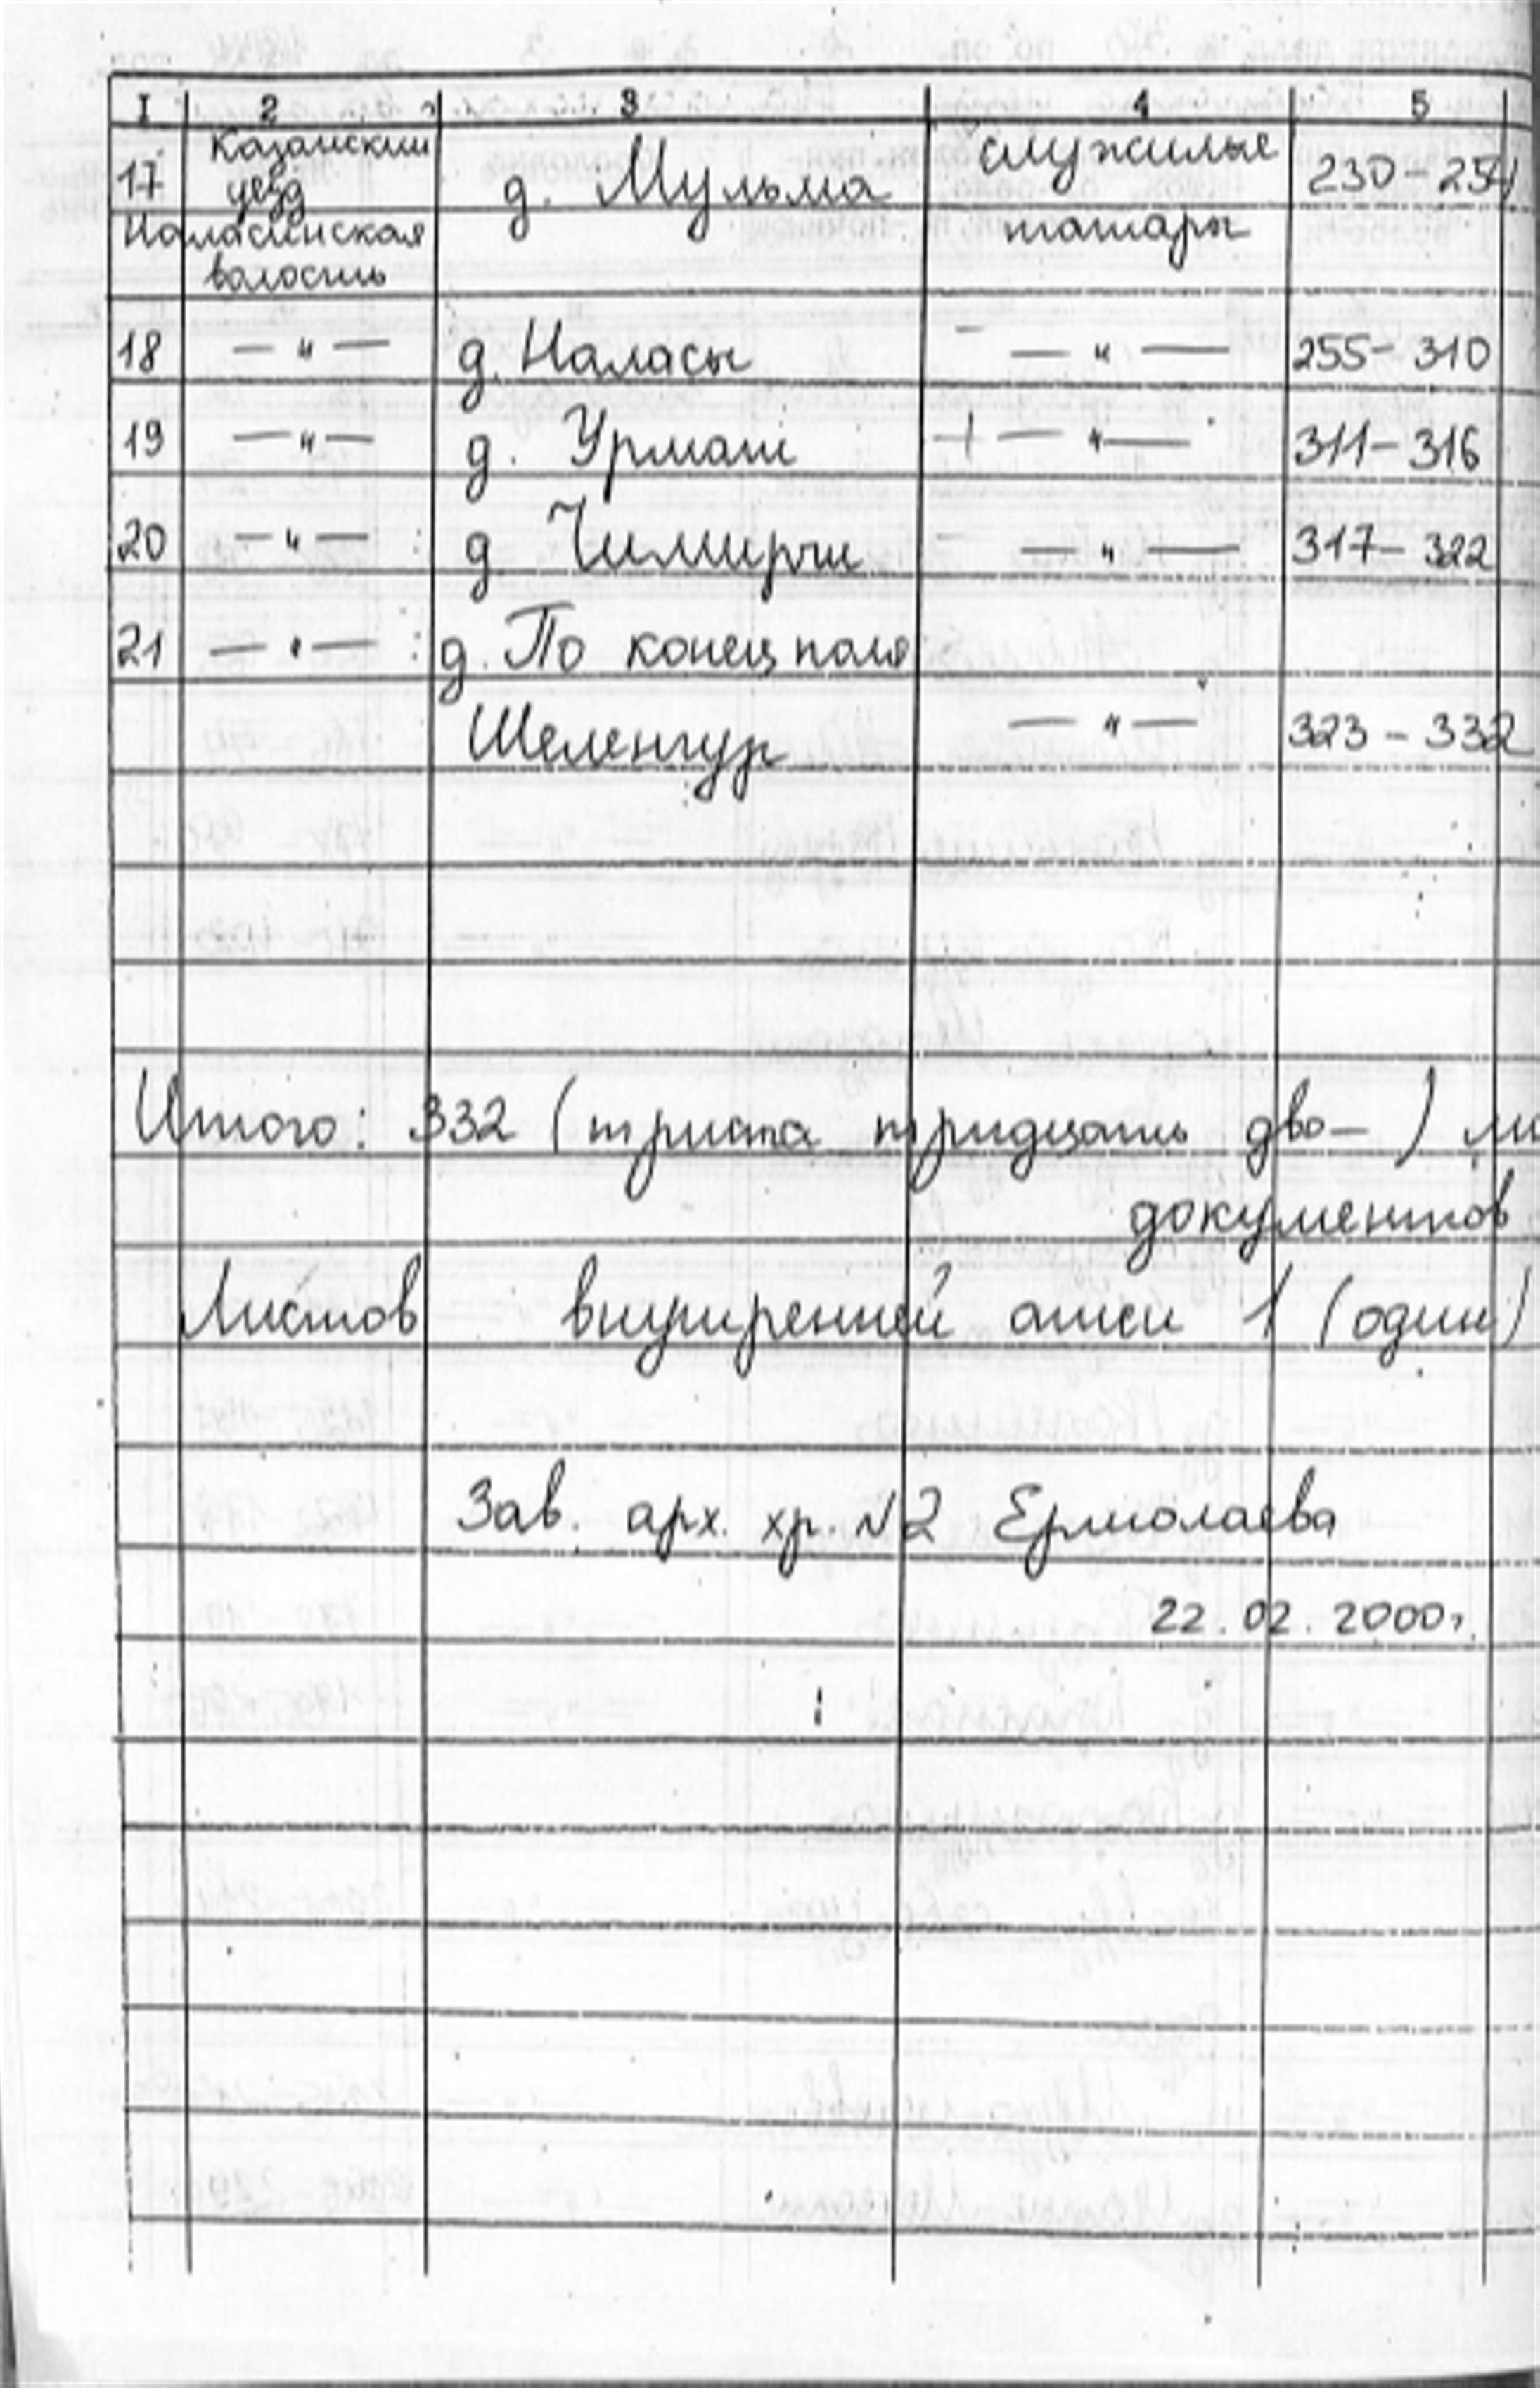 I 2 3 4 5
17 Казанский уезд д. Мульма служилые 230-254
Наласинская татары
волость
18 — " — д. Наласы — " — 255-310
19 — " — д. Урмат — " — 311-316
20 — " — д Чимирчи — " — 317-322
21 — " — д. По конец поля
Шеленгур — " — 323-332
Итого: 332 (триста тридцать два—) ли
документов
Листов внутренней описи 1 (один)
Зав. арх. хр. №2 Ермолаева
22.02.2000г.